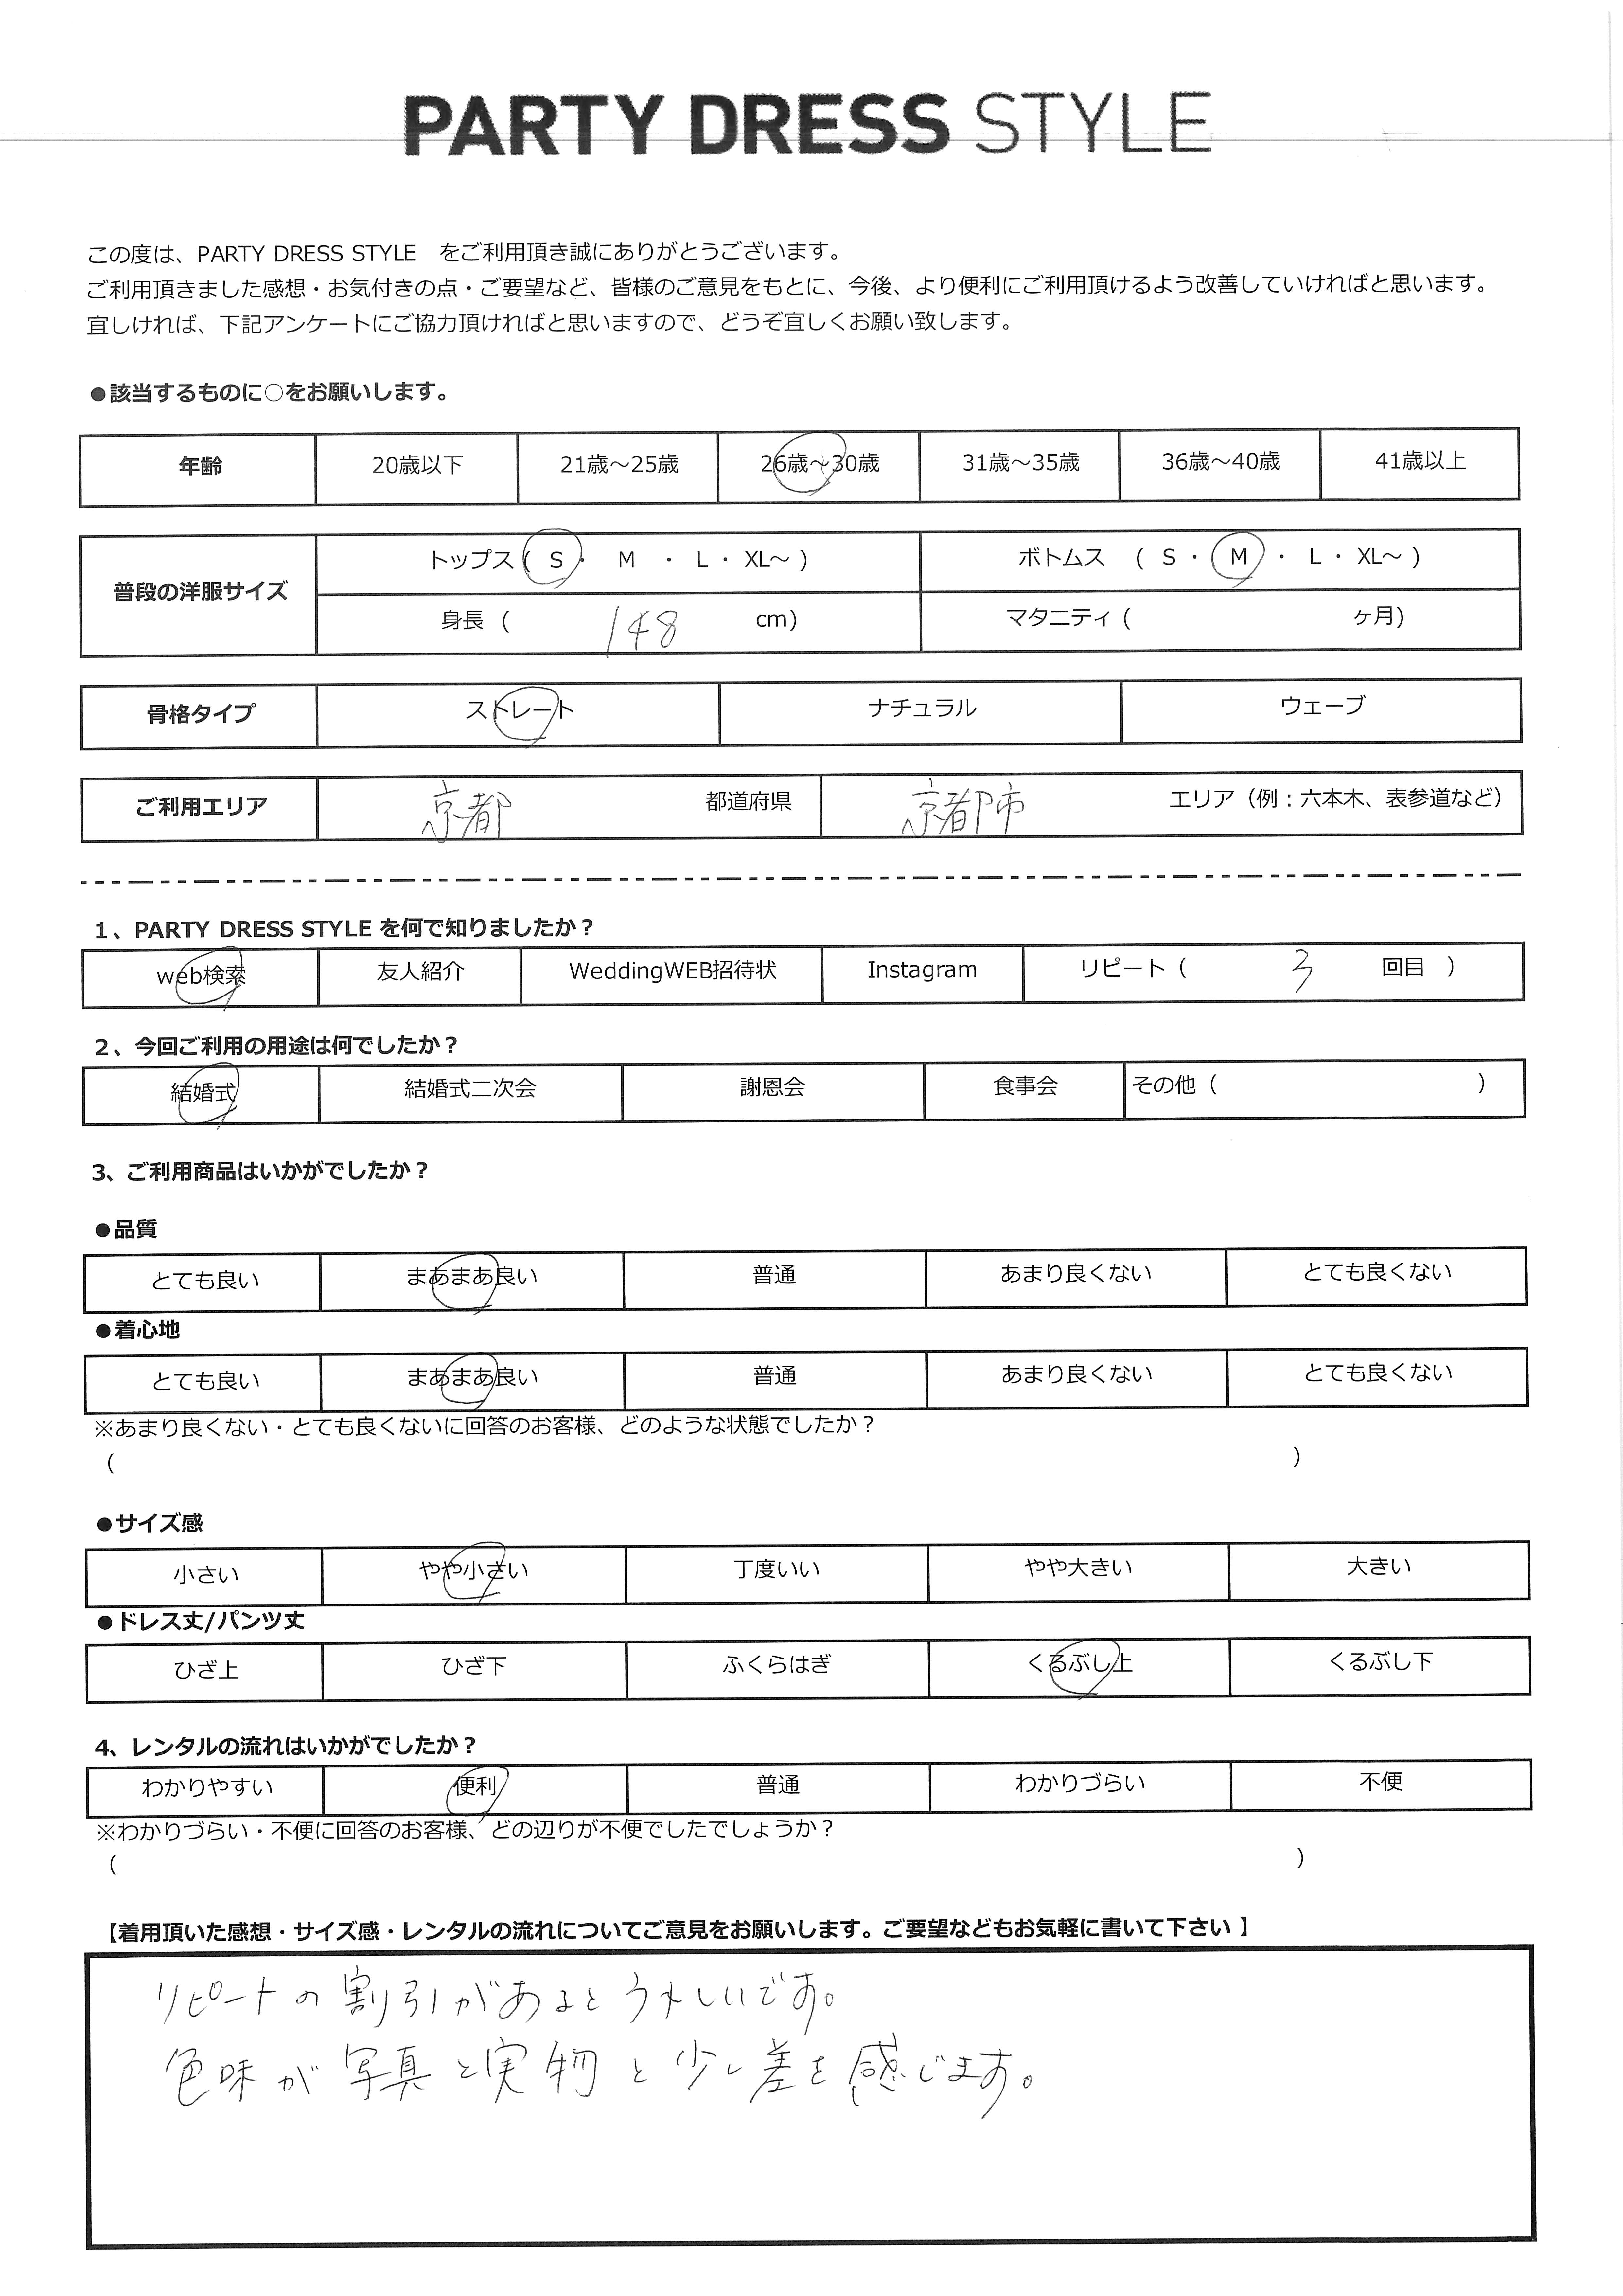 PARTY DRESS STYLE
この度は、PARTY DRESS STYLE　をご利用頂き誠にありがとうございます。
ご利用頂きました感想・お気付きの点・ご要望など、皆様のご意見をもとに、今後、より便利にご利用頂けるよう改善していければと思います。
宜しければ、下記アンケートにご協力頂ければと思いますので、どうぞ宜しくお願い致します。
●該当するものに○をお願いします。
年齢 20歳以下 21歳～25歳 26歳～30歳 31歳～35歳 36歳～40歳 41歳以上
普段の洋服サイズ トップス ( S ・ M ・ L ・ XL～ ) ボトムス ( S ・ M ・ L ・ XL～ )
身長 ( 148 cm) マタニティ ( ヶ月)
骨格タイプ ストレート ナチュラル ウェーブ
ご利用エリア 京都 都道府県 京都市 エリア（例：六本木、表参道など）
1、PARTY DRESS STYLE を何で知りましたか？
web検索 友人紹介 WeddingWEB招待状 Instagram リピート（ 3 回目 ）
2、今回ご利用の用途は何でしたか？
結婚式 結婚式二次会 謝恩会 食事会 その他（ ）
3、ご利用商品はいかがでしたか？
●品質
とても良い まあまあ良い 普通 あまり良くない とても良くない
●着心地
とても良い まあまあ良い 普通 あまり良くない とても良くない
※あまり良くない・とても良くないに回答のお客様、どのような状態でしたか？
（ ）
●サイズ感
小さい やや小さい 丁度いい やや大きい 大きい
●ドレス丈/パンツ丈
ひざ上 ひざ下 ふくらはぎ くるぶし上 くるぶし下
4、レンタルの流れはいかがでしたか？
わかりやすい 便利 普通 わかりづらい 不便
※わかりづらい・不便に回答のお客様、どの辺りが不便でしたでしょうか？
（ ）
【着用頂いた感想・サイズ感・レンタルの流れについてご意見をお願いします。ご要望などもお気軽に書いて下さい 】
リピートの割引があるとうれしいです。
色味が写真と実物と少し差を感じます。